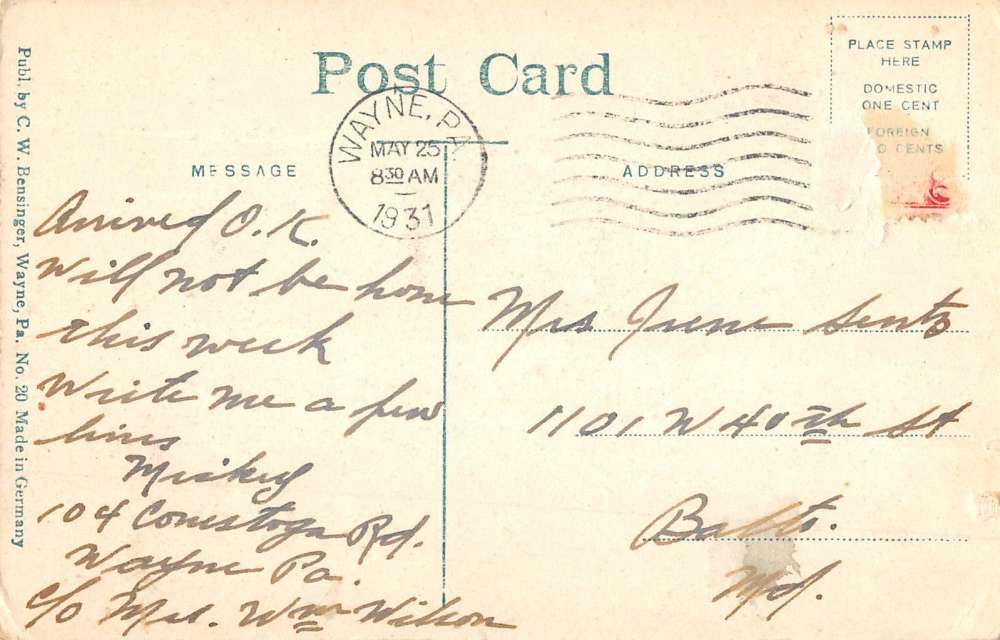 Post Card
PLACE STAMP
HERE
DOMESTIC
ONE CENT
FOREIGN
CENTS
WAYNE, PA
MAY 25
8 30 AM
1931
MESSAGE
ADDRESS
Arrived O.K.
Will not be home
this week
Write me a few
lines
Mickey
104 Conestoga Rd.
Wayne Pa.
c/o Mrs. Wm Wilson
Mrs Irene Sentz
1101 W 40th St
Balto.
Md.
Publ. by C. W. Bensinger, Wayne, Pa. No. 20 Made in Germany